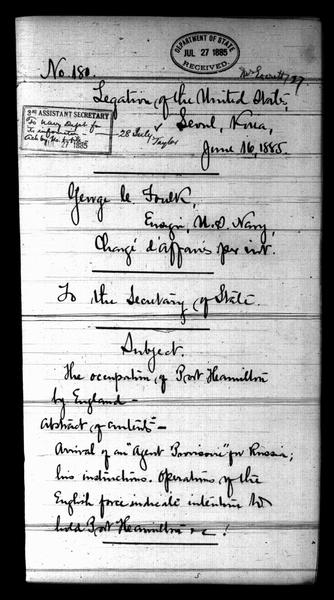 No. 180.
DEPARTMENT OF STATE
JUL 27 1885
RECEIVED.
Mr Everett
Legation of the United States,
Seoul, Korea,
June 16, 1885.
3RD ASSISTANT SECRETARY
To Navy Dept for
its information
27 1885
28 July
Taylor
George C. Foulk,
Ensign, U.S. Navy,
Chargé d'affaires per int.
To the Secretary of State.
Subject.
The occupation of Port Hamilton
by England —
Abstract of contents —
Arrival of an "Agent Provisoire" for Russia;
his instructions. Operations of the
English force indicate intention to
hold Port Hamilton &c!